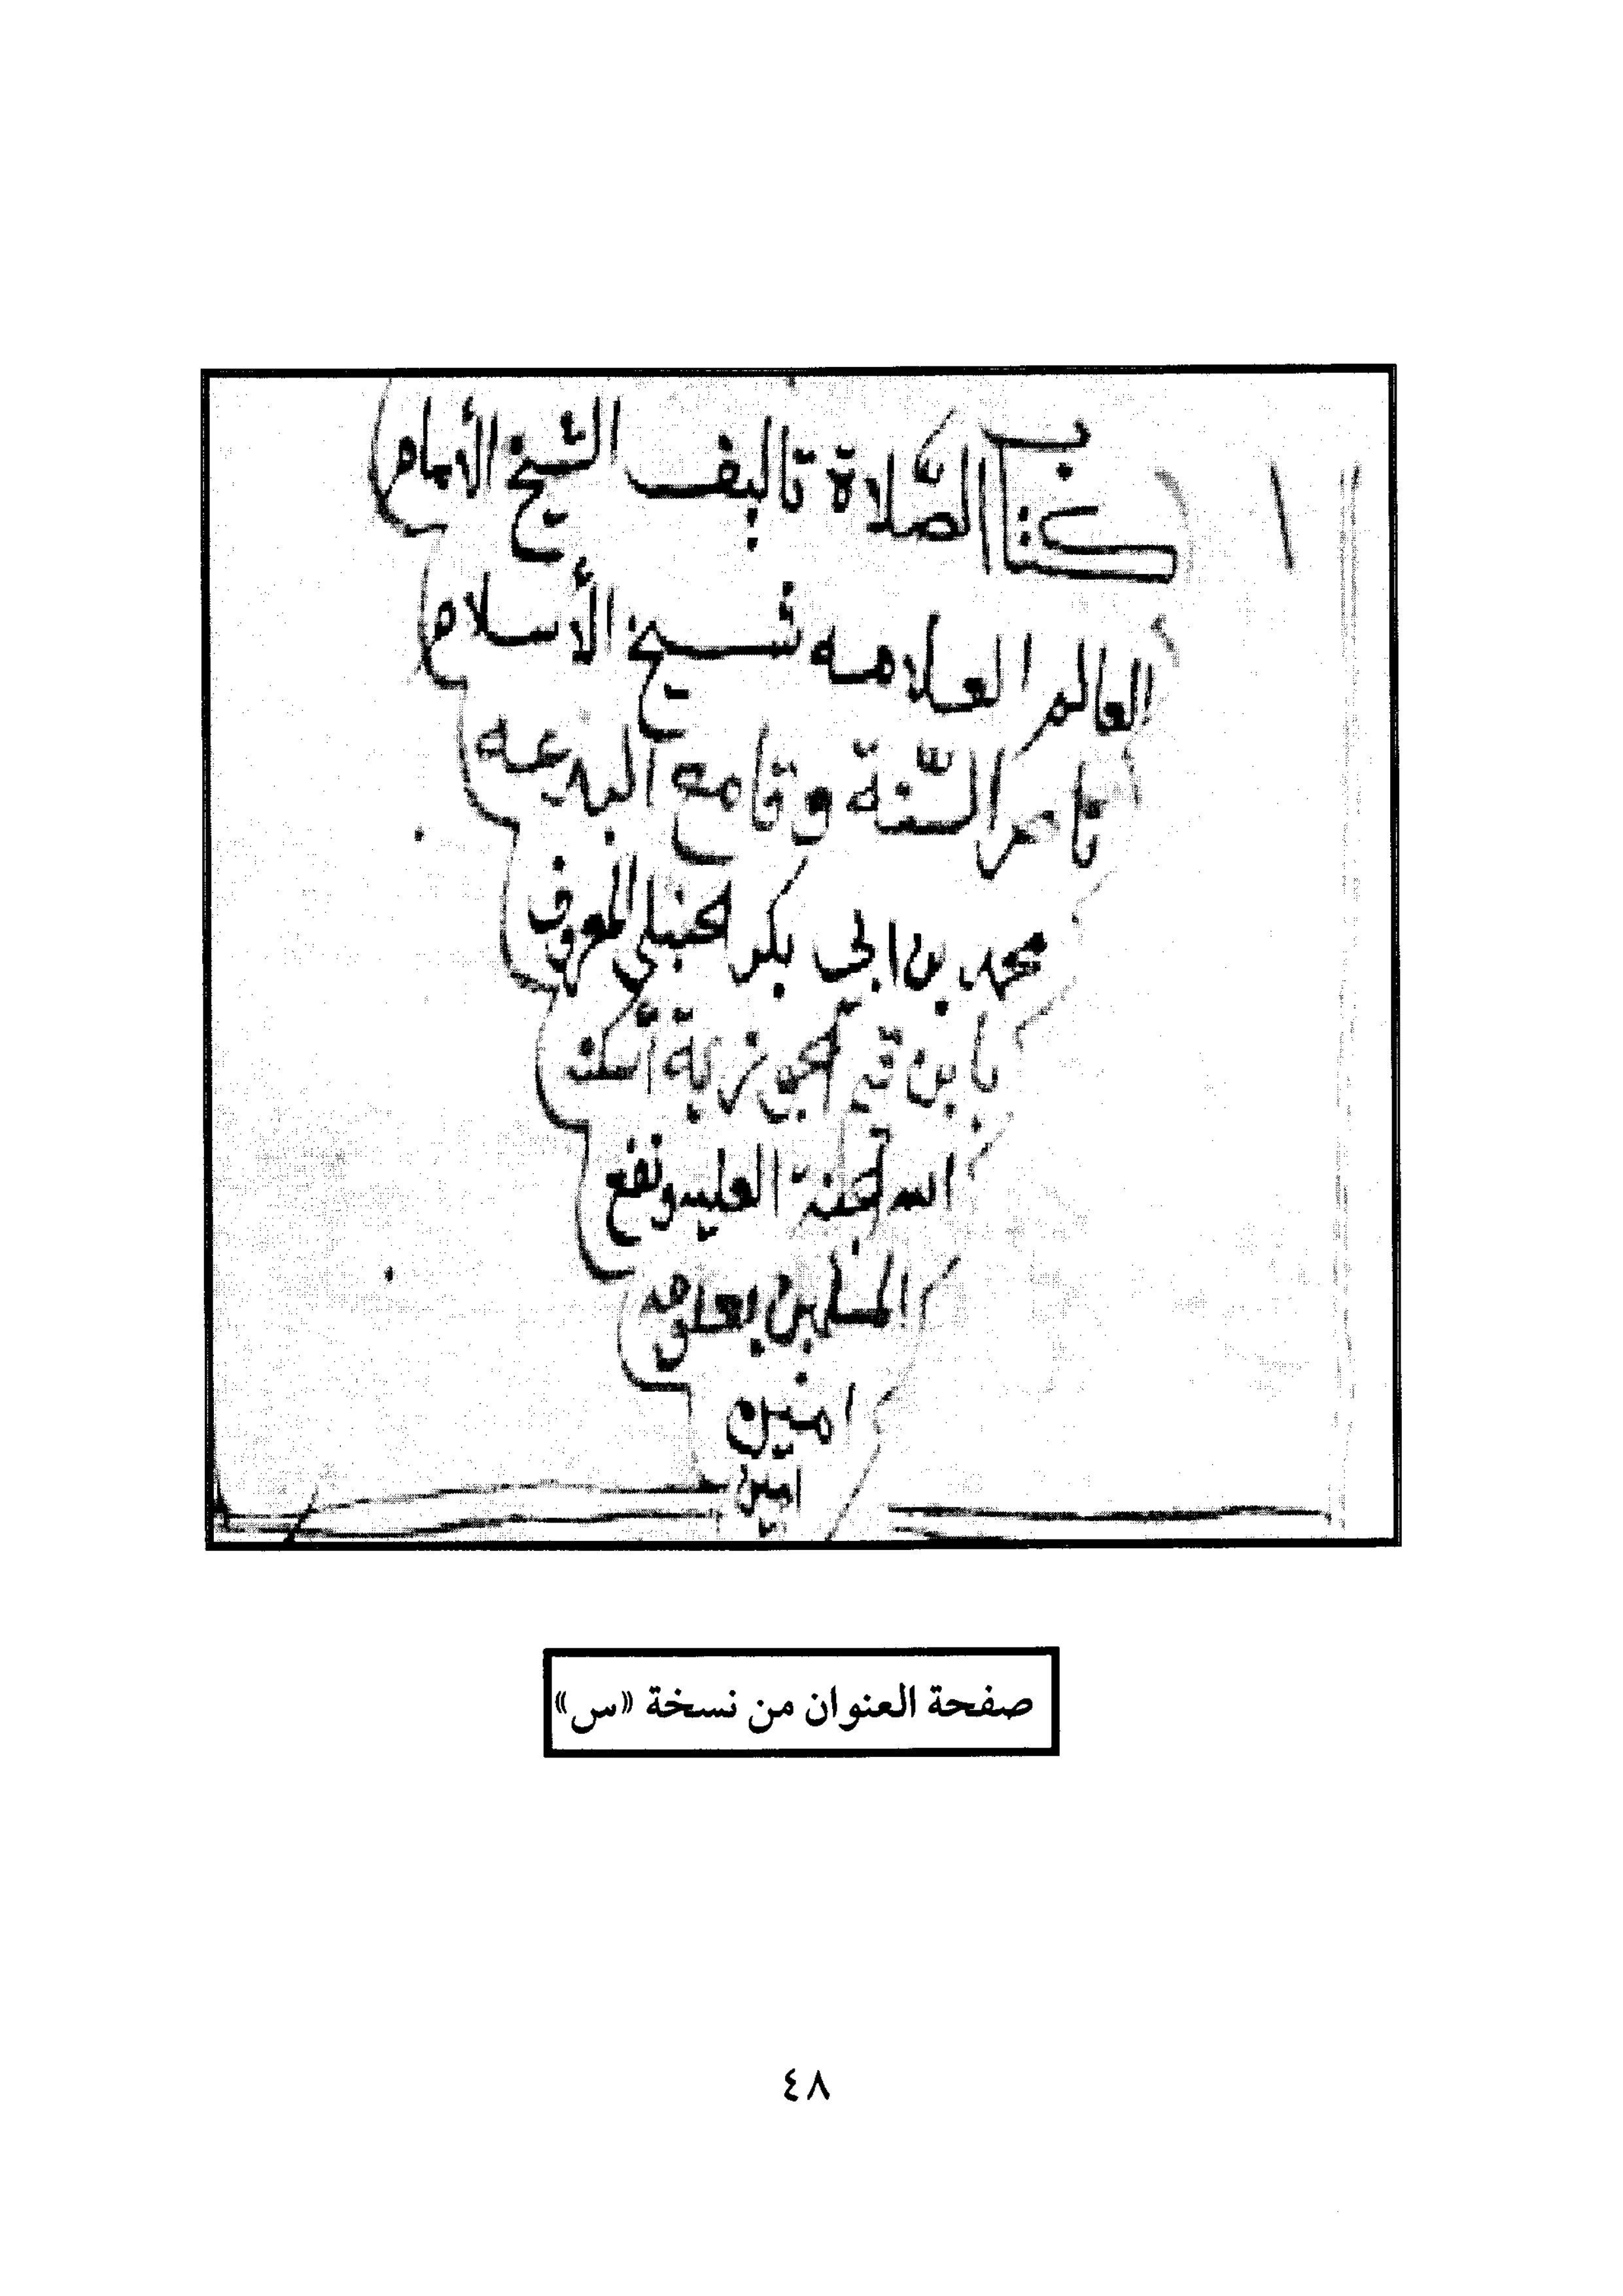 كتاب الصّلاة تأليف الشيخ الأمام
العالم العلامه شيخ الأسلام
ناصر السّنة وقامع البدعه
محمد بن ابي بكر الحنبلي المعروف
بابن قيم الجوزية أسكنه
الله الجنة العليه ونفع
المسلمين بعلومه
امنين
امين
صفحة العنوان من نسخة «س»
٤٨